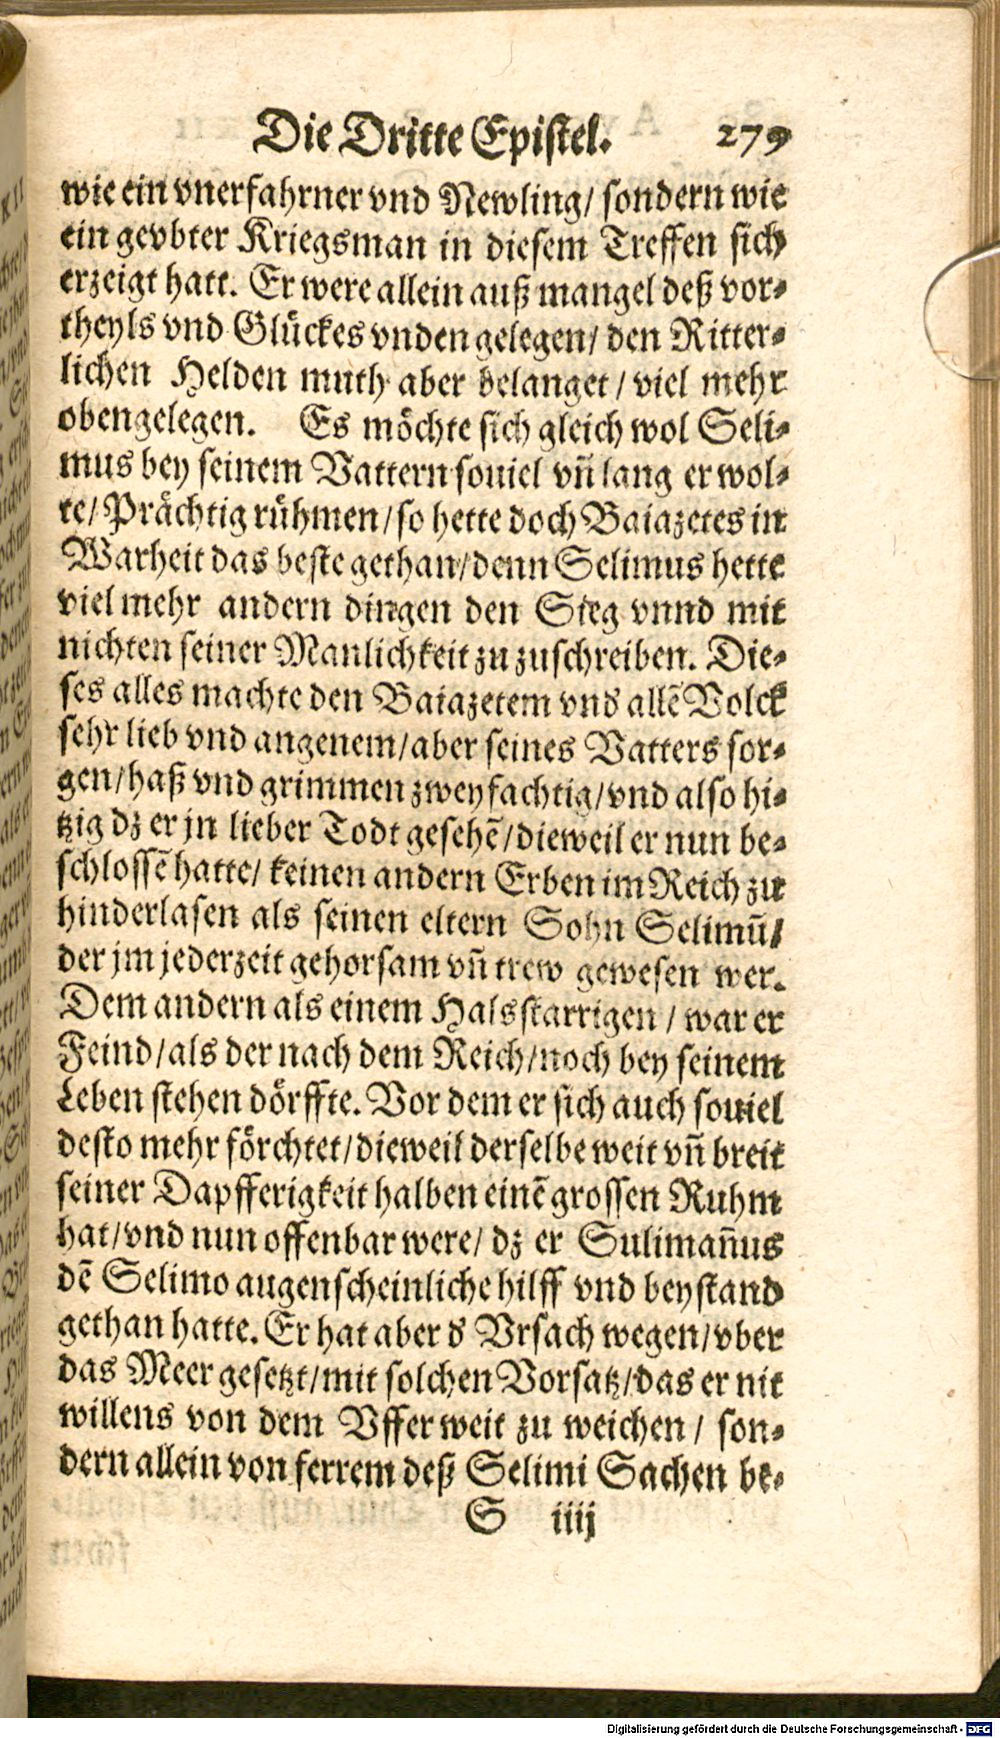 Die Dritte Epistel. 279
wie ein vnerfahrner vnd Newling/ sondern wie
ein gevbter Kriegsman in diesem Treffen sich
erzeigt hatt. Er were allein auß mangel deß vor-
theyls vnd Glückes vnden gelegen/ den Ritter-
lichen Helden muth aber belanget / viel mehr
obengelegen. Es möchte sich gleich wol Seli-
mus bey seinem Vattern souiel vñ lang er wol-
te/ Prächtig rühmen/ so hette doch Baiazetes in
Warheit das beste gethan/ denn Selimus hette
viel mehr andern dingen den Sieg vnnd mit
nichten seiner Manlichkeit zu zuschreiben. Die-
ses alles machte den Baiazetem vnd allẽ Volck
sehr lieb vnd angenem/ aber seines Vatters sor-
gen/ haß vnd grimmen zweyfachtig/ vnd also hi-
tzig dz er jn lieber Todt gesehẽ/ dieweil er nun be-
schlossẽ hatte/ keinen andern Erben im Reich zu
hinderlasen als seinen eltern Sohn Selimũ/
der jm jederzeit gehorsam vñ trew gewesen wer.
Dem andern als einem Halsstarrigen / war er
Feind/ als der nach dem Reich/ noch bey seinem
Leben stehen dörffte. Vor dem er sich auch souiel
desto mehr förchtet/ dieweil derselbe weit vñ breit
seiner Dapfferigkeit halben einẽ grossen Ruhm
hat/ vnd nun offenbar were/ dz er Sulimañus
dẽ Selimo augenscheinliche hilff vnd beystand
gethan hatte. Er hat aber d Vrsach wegen/ vber
das Meer gesetzt/ mit solchen Vorsatz/ das er nit
willens von dem Vffer weit zu weichen / son-
dern allein von ferrem deß Selimi Sachen be-
S iiij
Digitalisierung gefördert durch die Deutsche Forschungsgemeinschaft - DFG